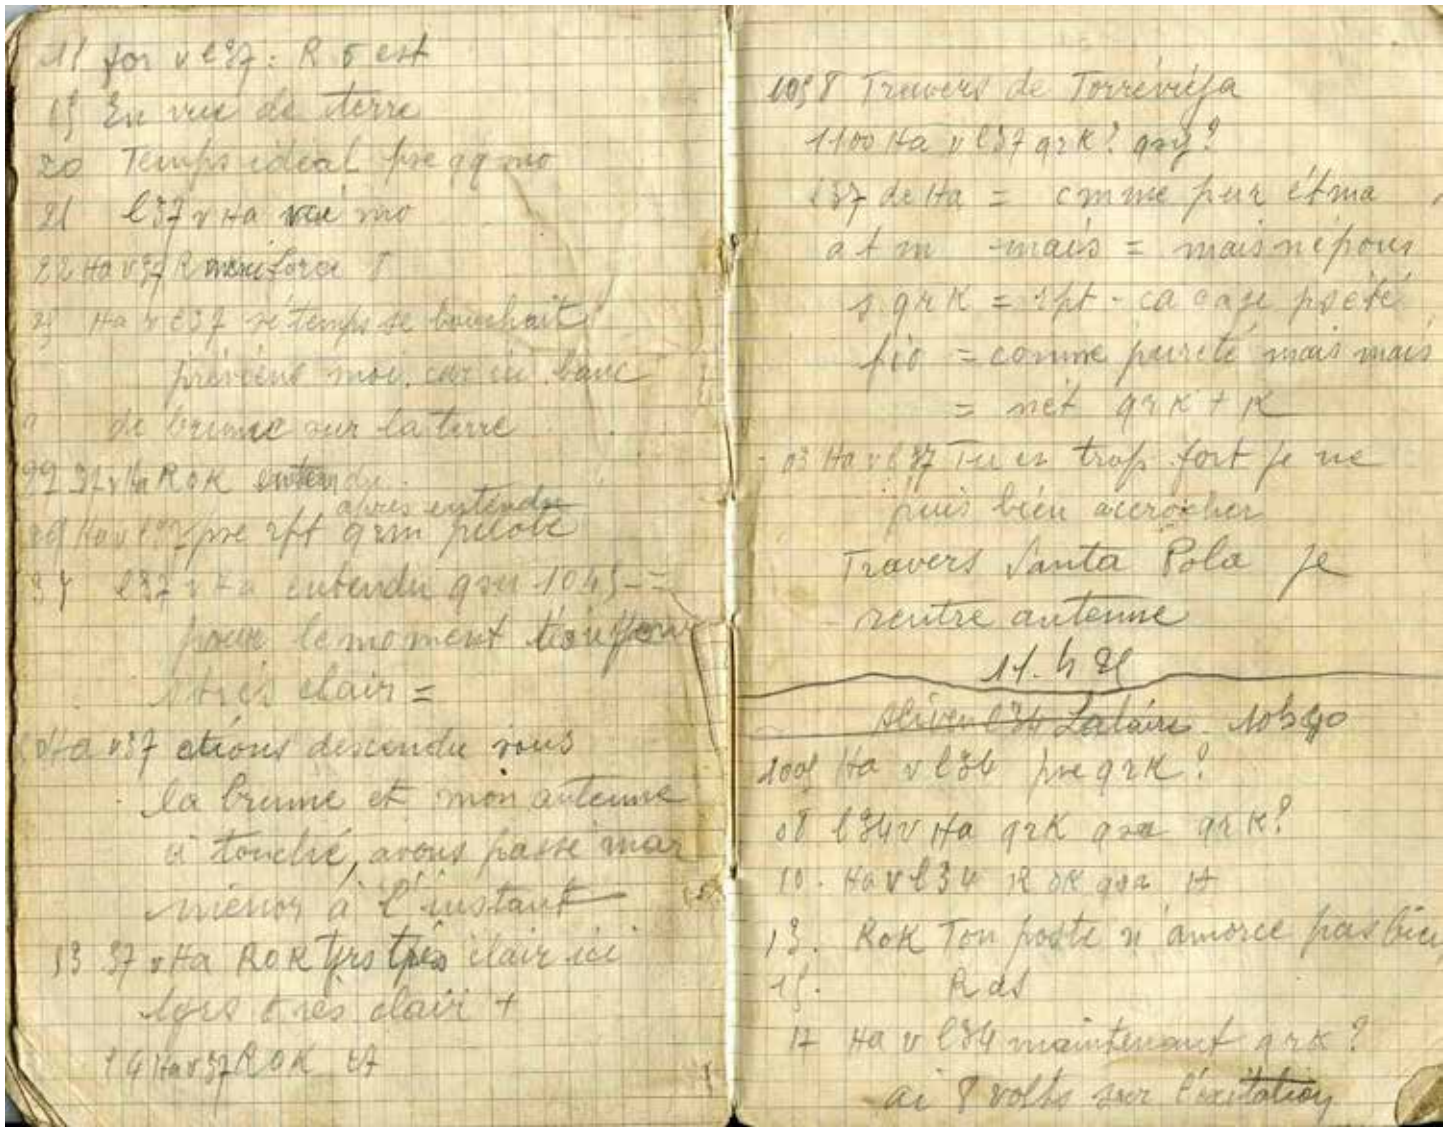 11 for v l37: R 5 est
15 En vue de terre
20 Temps idéal pse qq mo
21 l37 v Ha mo
22 Ha v 37 R force 8
25 Ha v l37 si temps se bouchait
préviens moi, car ici banc
de brume sur la terre
37 v Ha R OK entendu
après entendu
29 Ha v l37 pse rpt qrm pilote
l37 v Ha entendu qru 1045 =
pour le moment
très clair =
Ha v 37 étions descendu sous
la brume et mon antenne
a touché, avons passé mar
menor à l'instant
53 37 v Ha ROK tjrs très clair ici
tjrs très clair +
54 Ha v 37 ROK
1058 Travers de Torrévieja
1100 Ha v l37 qrk? qsy?
l37 de Ha = cmme pur étma
atm mais = mais népous
s qrk = rpt - ca case psété
fio = comme pureté mais mais
= nét qrk + K
03 Ha v l37 Tu es trop fort je ne
puis bien accrocher
Travers Santa Pola je
rentre antenne
11.h 25
l34 10h40
1005 Ha v l34 pse qrk?
08 l34 v Ha qrk qsa qrk?
10. Ha v l34 R OK qsa
13. ROK Ton poste n'amorce pas bien
15. Ras
17 Ha v l34 maintenant qrk?
ai 8 volts sur l'exitation